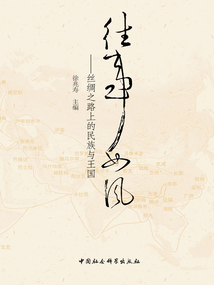 往事如风
——丝绸之路上的民族与王国
徐兆寿 主编
中国社会科学出版社